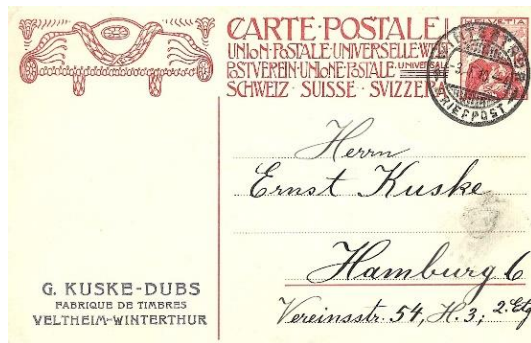 CARTE·POSTALE
UNION·POSTALE·UNIVERSELLE·WELT
POSTVEREIN·UNIONE·POSTALE·UNIVERSALE
SCHWEIZ·SUISSE·SVIZZERA
HELVETIA
WINTERTHUR
BRIEFPOST
Herrn
Ernst Kuske
Hamburg 6
Vereinsstr. 54, H. 3, 2. Etg
G. KUSKE-DUBS
FABRIQUE DE TIMBRES
VELTHEIM-WINTERTHUR